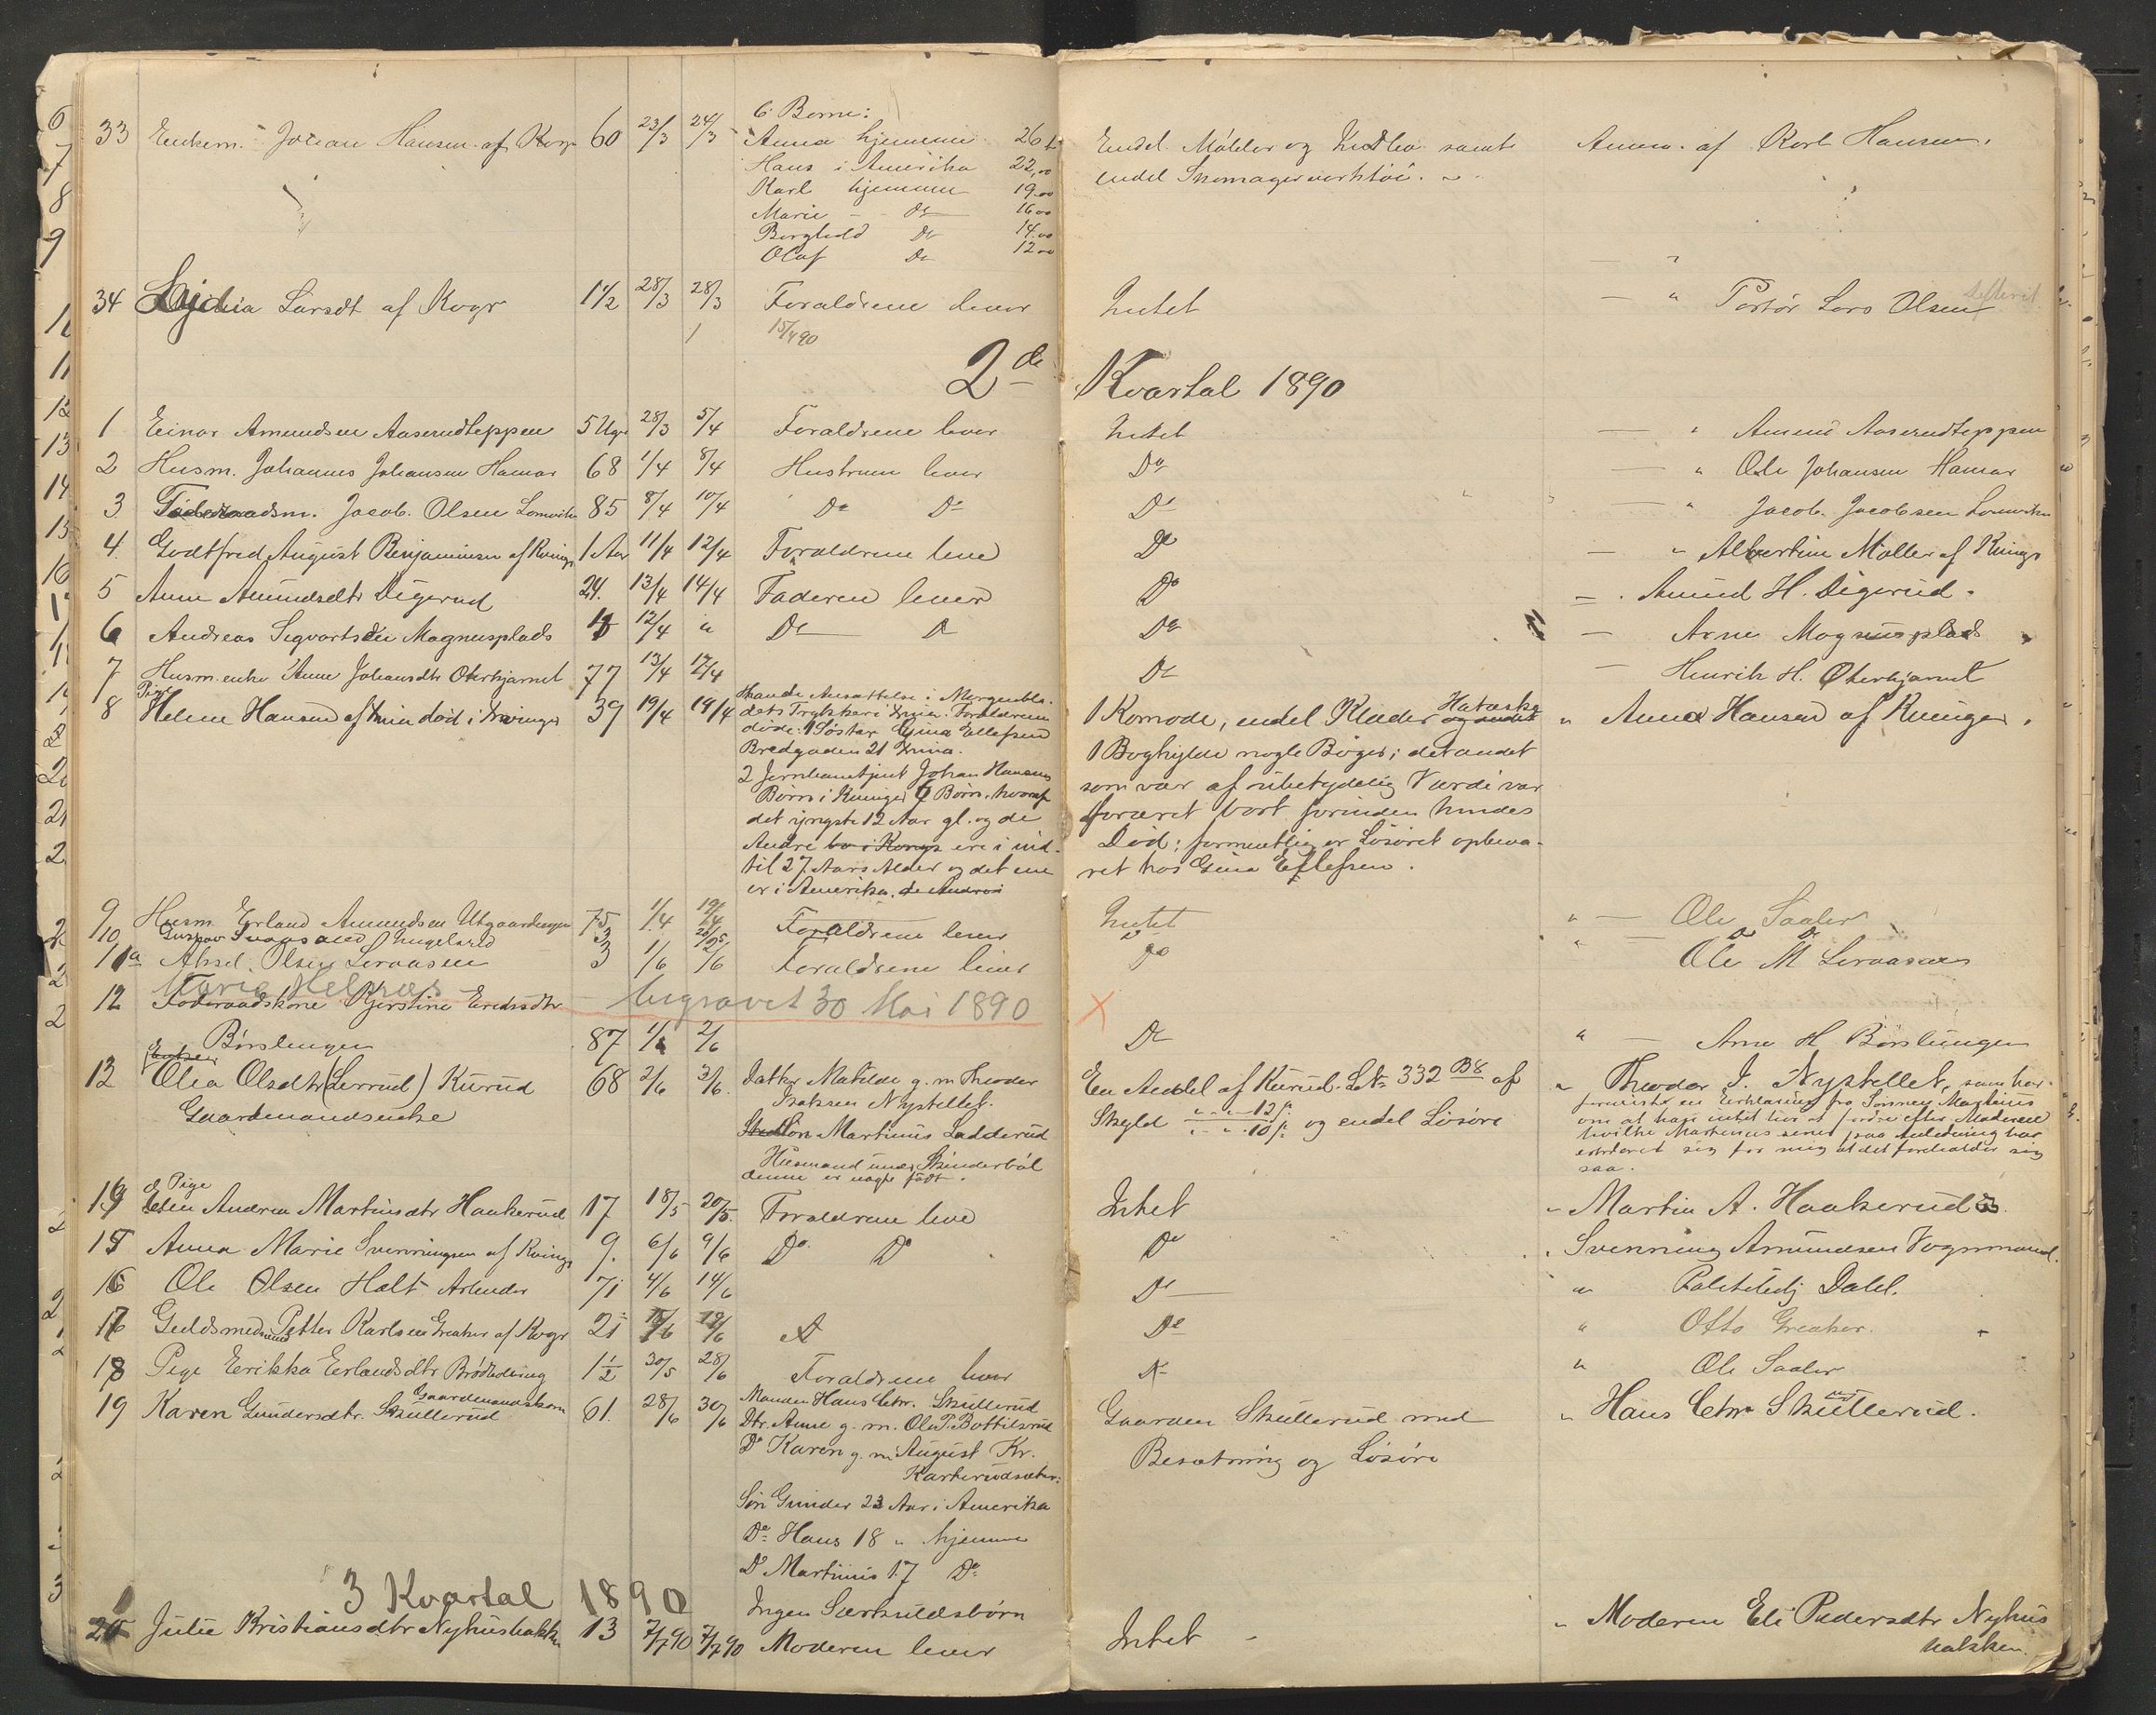 33 Enkem. Johan Hansen af Kvgr 60 23/3 24/3 6 Børn: Endel Møbler og Indbo samt Anm. af Karl Hansen.
Anna hjemme 26
Hans i Amerika 22,00 endel Skomagerverktøi.
Karl hjemme 19.00
Marie - Do 16.00
Borghild Do 14.00
Olaf Do 12.00
34 Lydia Larsdt af Kvgr 1 1/2 28/3 28/3 Forældrene lever Intet — " Portør Lars Olsen
15/4 90
2de Kvartal 1890
1 Einar Amundsen Aaserudteppen 5 Ugr 28/3 5/4 Forældrene lever Intet — " Amund Aaserudteppen
2 Husm. Johannes Johansen Hamar 68 1/4 8/4 Hustruen lever Do — " Ole Johansen Hamar
3 Føderaadsm. Jacob Olsen Lomviken 85 8/4 10/4 Do Do Do — " Jacob Jacobsen Lomviken
4. Godtfred August Benjaminsen af Kvinge 1 Aar 11/4 12/4 Forældrene leve Do — " Albertine Møller af Kvings
5 Anne Amundsdtr Digerud 24. 13/4 14/4 Faderen lever Do — " Amund H. Digerud.
6 Andreas Sigvartsen Magnusplads 12/4 " Do Do Do — Arne Magnusplads
7 Husm.enke Anne Johansdtr Oterkjærnet 77 13/4 17/4 Do — Henrik H. Oterkjærnet
8 Pige Helene Hansen af Xnia død i Kvinger 39 19/4 19/4 Havde Ansættelse i Morgenbla- 1 Komode, endel Klæder Hatæske og andet " Anna Hansen af Kvinger.
dets Trykkeri Xnia. Forældrene
døde. 1 Søster Gina Ellefsen
Bredgaden 21 Xnia. 1 Boghylde nogle Bøger; det andet
2 Jernbanebetjent Johan Hansens som var af ubetydelig Værdi var
Børn i Kvinger 6 Børn, hvoraf
det yngste 12 Aar gl. og de foræret bort forinden hendes
Andre bor i Kongs ere i ind- Død; formentlig er Løsøret opbeva-
til 27 Aars Alder og det ene ret hos Gina Ellefsen.
er i Amerika. de Andre i
9 Husm. Erland Amundsen Utgaardengen 75 1/4 19/4 Intet " — Ole Saaler
10 Gustav Ingelsrud 3 Forældrene lever Do
11a Aksel Olsen Leraasen 3 1/6 2/6 Forældrene lever Do " Ole M Leraasen
Maria Helnæs — begravet 30 Mai 1890 X
12 Føderaadskone Kjerstine Eriksdtr
Børslungen 87 1/6 2/6 Do " — Arne H Børslungen
13 Enken Olia Olsdtr (Lerrud) Kurud 68 2/6 3/6. Datter Matilde g. m Theodor En Andel af Kurud. L.No 332 B8 af " Theodor I. Nystellet, som har
Gaardmandsenke Isaksen Nystellet. Skyld " - " - 12 ß. forevist en Erklæring fra Sønnen Martinus
Søn Martinus Ladderud " - " 10 ß. og endel Løsøre om at have intet hos at fordre efter Moderen
Husmand under Skinderbøl hvilke Martinus senere paa Anledning har
denne er uægte født. erklæret sig for mig at det forholder sig
saa.
14 Pige Elen Andrea Martinsdtr Haakerud 17 18/5 20/5. Forældrene leve Intet " Martin A. Haakerud
15 Anna Marie Svenningsen af Kvings 9. 6/6 9/6 Do Do Do " Svenning Amundsen Vognmand.
16 Ole Olsen Holt Arbeider 71 4/6 14/6 Do — " Politibetj Dahl.
17 Guldsmedsvend Petter Karlsen Greaker af Kvgr 21 Do " Otto Greaker.
18 Pige Eerikka Erlandsdtr Brødbøleng 1 1/2 30/5 28/6 Forældrene lever Do " Ole Saaler
19 Karen Gundersdtr. Skullerud Gaardmandskone 61. 28/6 30/6 Manden Hans Chr. Skullerud Gaarden Skullerud med " Hans Chr Skullerud.
Dtr. Anne g. m. Ole P. Bottilsrud
Do Karen g. m. August Kr. Besætning og Løsøre
Karterudsæter.
Søn Gunder 23 Aar i Amerika
Do Hans 18 " hjemme
Do Martinus 17 Do
3 Kvartal 1890 Ingen Særkuldsbørn
1 Julie Kristiansdtr Nyhusbakken 13 7/7 90 7/7 90 Moderen lever Intet " Moderen Eli Pedersdtr Nyhus
bakken.